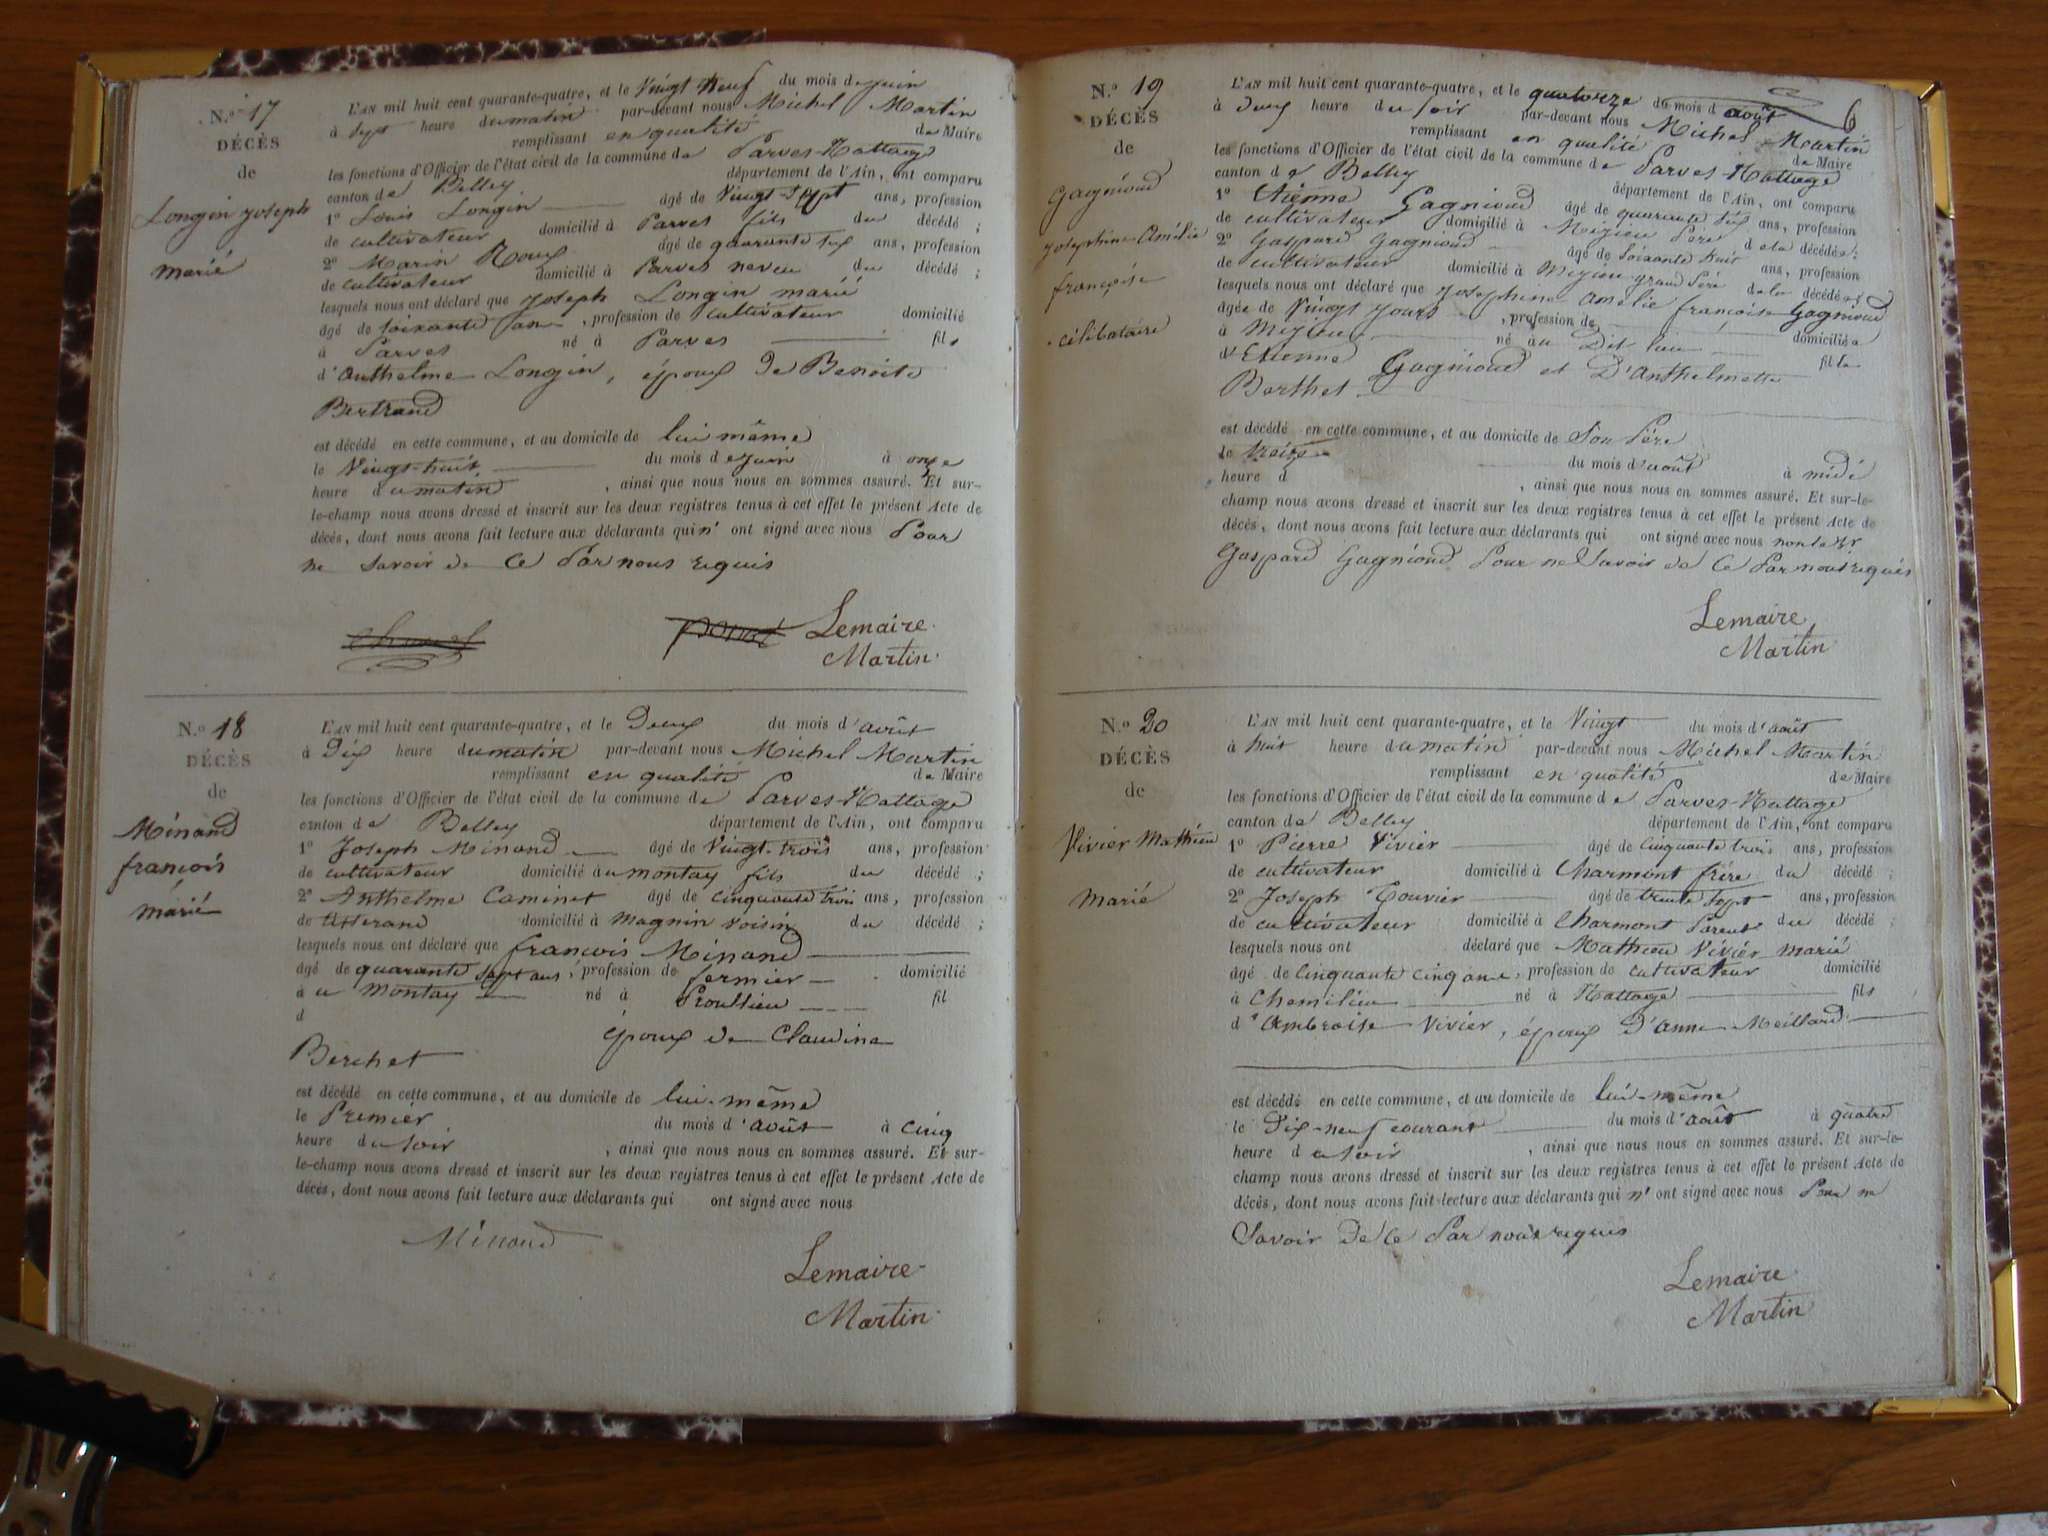 N.o 17
DÉCÈS
de
Longin Joseph
marié
L'AN mil huit cent quarante-quatre, et le Vingt neuf du mois de juin
à Sept heure du matin par-devant nous Michel Martin
remplissant en qualité de Maire
les fonctions d'Officier de l'état civil de la commune de Parves-Nattage
canton de Belley département de l'Ain, ont comparu
1º Louis Longin âgé de Vingt-Sept ans, profession
de cultivateur domicilié à Parves fils du décédé ;
2º Marin Roux âgé de quarante six ans, profession
de cultivateur domicilié à Parves neveu du décédé ;
lesquels nous ont déclaré que Joseph Longin marié
âgé de soixante ans, profession de cultivateur domicilié
à Parves né à Parves fils
d'Anthelme Longin, époux de Benoite
Bertrand
est décédé en cette commune, et au domicile de lui même
le Vingt-huit du mois de juin à onze
heure du matin, ainsi que nous nous en sommes assuré. Et sur-
le-champ nous avons dressé et inscrit sur les deux registres tenus à cet effet le présent Acte de
décès, dont nous avons fait lecture aux déclarants qui n' ont signé avec nous Pour
ne Savoir de ce Par nous requis
Lemaire
Martin
N.o 18
DÉCÈS
de
Minand
françois
marié
L'AN mil huit cent quarante-quatre, et le Deux du mois d'août
à Dix heure du matin par-devant nous Michel Martin
remplissant en qualité de Maire
les fonctions d'Officier de l'état civil de la commune de Parves-Nattage
canton de Belley département de l'Ain, ont comparu
1º Joseph Minand âgé de Vingt-trois ans, profession
de cultivateur domicilié au montay fils du décédé ;
2º Anthelme Caminet âgé de cinquante trois ans, profession
de tisserand domicilié à Magnin voisin du décédé ;
lesquels nous ont déclaré que françois Minand
âgé de quarante sept ans, profession de fermier domicilié
à au montay né à Proullieu fil
d
époux de Claudine
Berchet
est décédé en cette commune, et au domicile de lui-même
le Premier du mois d'août à cinq
heure du soir, ainsi que nous nous en sommes assuré. Et sur-
le-champ nous avons dressé et inscrit sur les deux registres tenus à cet effet le présent Acte de
décès, dont nous avons fait lecture aux déclarants qui ont signé avec nous
Minand
Lemaire
Martin
6
N.o 19
DÉCÈS
de
Gagnioud
Josephine Amélie
françoise
célibataire
L'AN mil huit cent quarante-quatre, et le quatorze du mois d'août
à Deux heure du soir par-devant nous Michel Martin
remplissant en qualité de Maire
les fonctions d'Officier de l'état civil de la commune de Parves-Nattage
canton de Belley département de l'Ain, ont comparu
1º Etienne Gagnioud âgé de quarante six ans, profession
de cultivateur domicilié à Meyieu Père de la décédée ;
2º Gaspard Gagnioud âgé de soixante huit ans, profession
de cultivateur domicilié à Meyieu grand Père de la décédée
lesquels nous ont déclaré que Josephine Amélie françoise Gagnioud
âgée de Vingt jours, profession de domiciliée
à Meyieu né au Dit lieu fille
d'Etienne Gagnioud et D'Anthelmette
Berthet
est décédé en cette commune, et au domicile de Son Père
le treize du mois d'août à midi
heure d, ainsi que nous nous en sommes assuré. Et sur-le-
champ nous avons dressé et inscrit sur les deux registres tenus à cet effet le présent Acte de
décès, dont nous avons fait lecture aux déclarants qui ont signé avec nous
Gaspard Gagnioud Pour ne Savoir de ce Par nous requis
Lemaire
Martin
N.o 20
DÉCÈS
de
Vivier Mathieu
Marié
L'AN mil huit cent quarante-quatre, et le Vingt du mois d'août
à huit heure du matin par-devant nous Michel Martin
remplissant en qualité de Maire
les fonctions d'Officier de l'état civil de la commune de Parves-Nattage
canton de Belley département de l'Ain, ont comparu
1º Pierre Vivier âgé de cinquante trois ans, profession
de cultivateur domicilié à Charmont frère du décédé ;
2º Joseph Touvier âgé de trente sept ans, profession
de cultivateur domicilié à Charmont Parent du décédé ;
lesquels nous ont déclaré que Mathieu Vivier marié
âgé de cinquante cinq ans, profession de cultivateur domicilié
à Chemilieu né à Nattage fils
d'Ambroise Vivier, époux d'anne Meillard
est décédé en cette commune, et au domicile de lui-même
le Dix-neuf courant du mois d'août à quatre
heure du soir, ainsi que nous nous en sommes assuré. Et sur-le-
champ nous avons dressé et inscrit sur les deux registres tenus à cet effet le présent Acte de
décès, dont nous avons fait lecture aux déclarants qui n' ont signé avec nous Pour ne
Savoir de ce Par nous requis
Lemaire
Martin